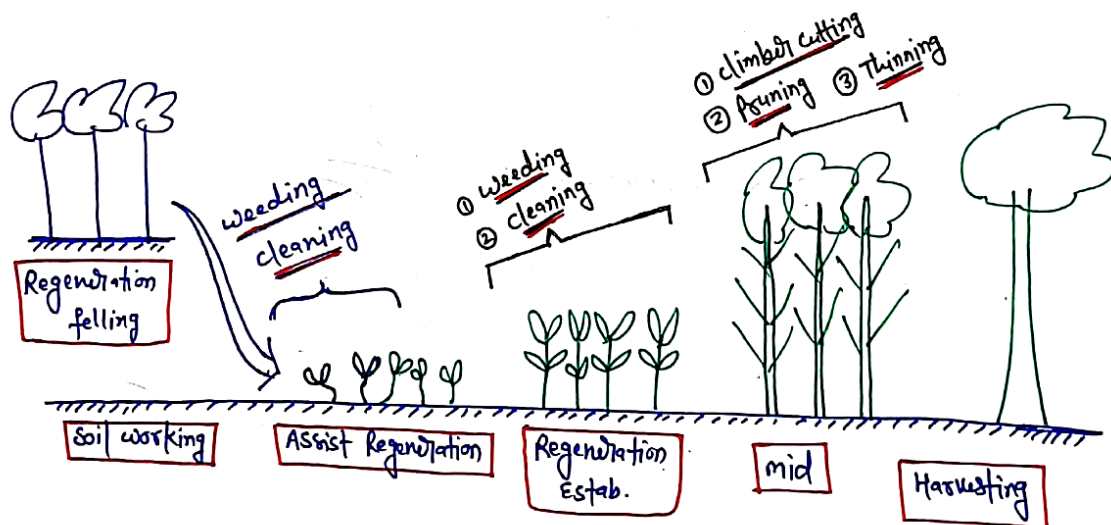 Regeneration
felling
weeding
cleaning
① weeding
② cleaning
① climber cutting
② Pruning ③ Thinning
Soil working
Assist Regeneration
Regeneration
Estab.
mid
Harvesting